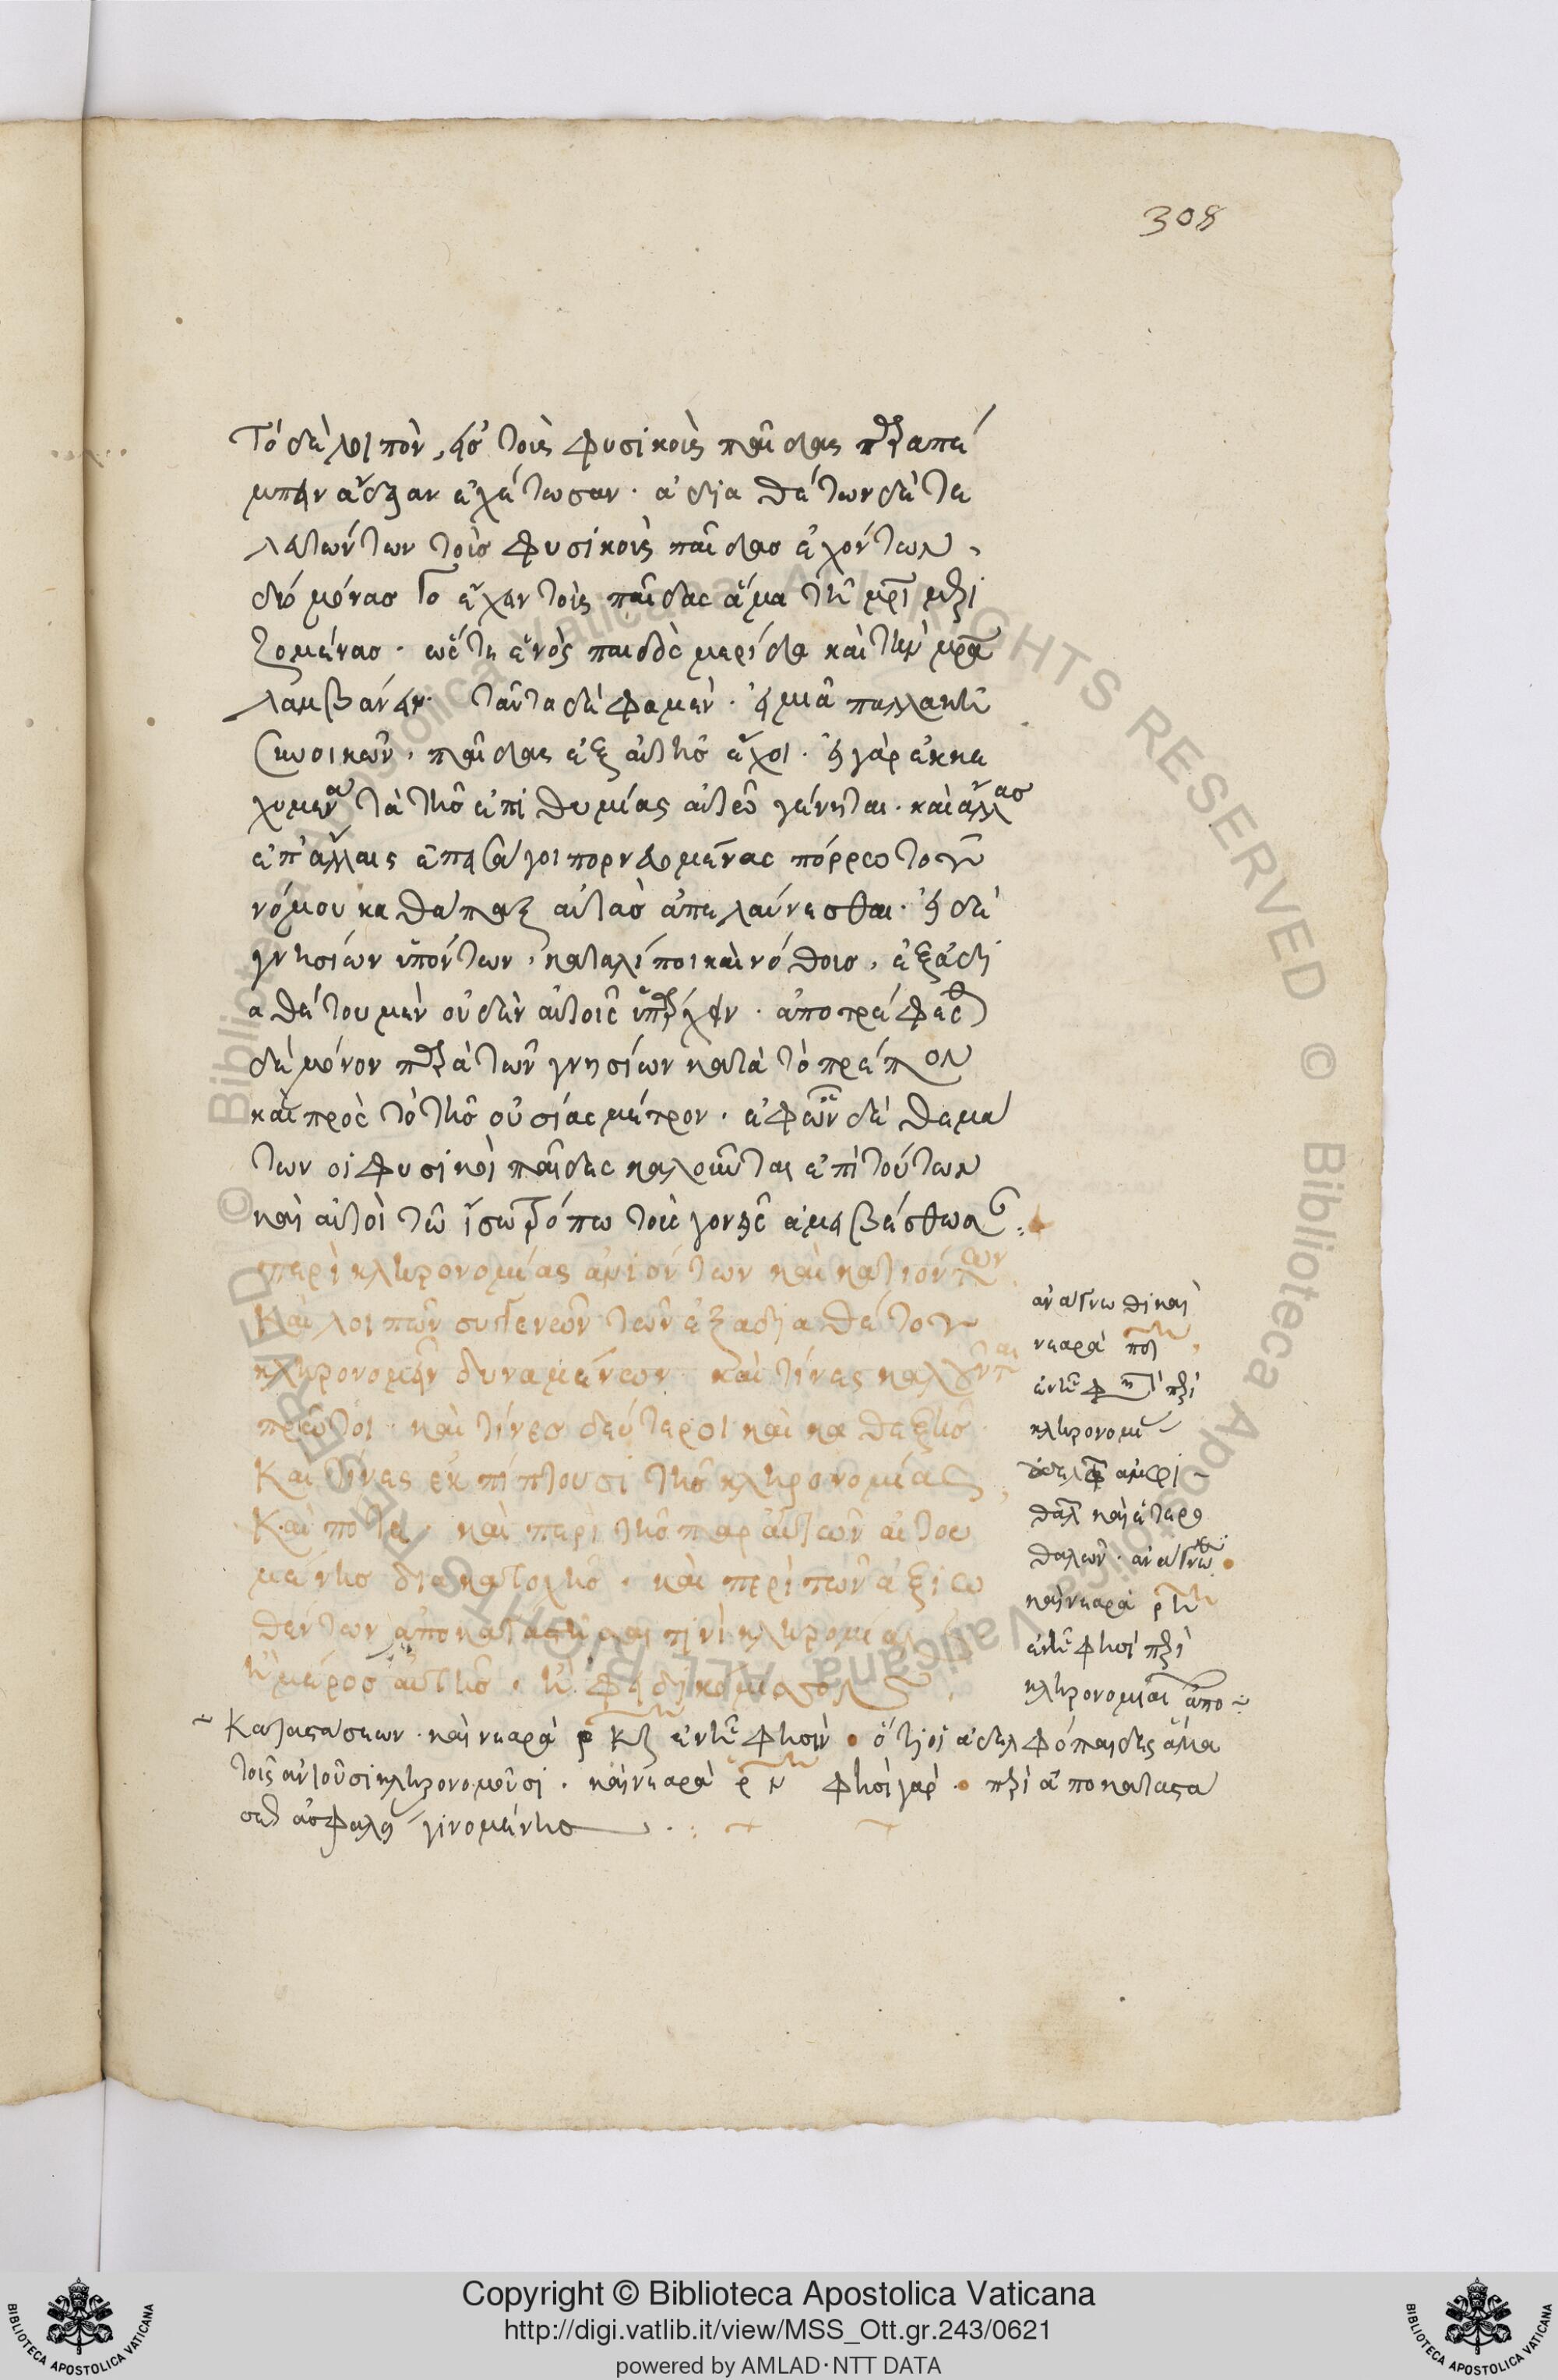 308
Τὸ δὲ λοιπὸν, εἰς τοὺς φυσικοὺς παῖδας παραπέ
μπειν ἄδειαν ἐχέτωσαν. ἀδιαθέτων δὲ τε
λευτώντων τοὺς φυσικοὺς παῖδας ἐχόντων,
δύο μόνας Γο ἔχειν τοὺς παῖδας ἅμα τῆ μρὶ μερι
ζομένας. ὥστε ἑνὸς παιδὸς μερίδα καὶ τὴν μρα
λαμβάνειν. ταῦτα δὲ φαμὲν. εἰ μιᾶ παλλακῆ
συνοικῶν, παῖδας ἐξ αὐτῆς ἔχοι. εἰ γὰρ ἐκκε
χυμένα τὰ τῆς ἐπιθυμίας αὐτοῦ γένηται. καὶ ἄλλας
ἐπ' ἄλλαις ἐπεισάγοι πορνευομένας πόρρω τοῦ
νόμου καθάπαξ αὐτὰς ἀπελαύνεσθαι. εἰ δὲ
γνησίων ὑπόντων, καταλίποι καὶ νόθους, ἐξ ἀδι
αθέτου μὲν οὐδὲν αὐτοῖς ὑπάρχειν. ἀποτρέφεσθ
δὲ μόνον παρὰ τῶν γνησίων κατὰ τὸ πρέπον
καὶ πρὸς τὸ τῆς οὐσίας μέτρον. ἐφ' ὧν δὲ θεμά
των οἱ φυσικοὶ παῖδες καλοῦνται ἐπὶ τούτων
καὶ αὐτοὶ τῶ ἴσω τρόπω τοὺς γονεῖς ἀμειβέσθωσ
περὶ κληρονομίας ἀνιόντων καὶ κατιόντων
Καὶ λοιπῶν συγγενῶν τῶν ἐξ ἀδιαθέτου
κληρονομεῖν δυναμένων. καὶ τίνες καλοῦνται
πρῶτοι. καὶ τίνες δεύτεροι καὶ καθεξῆς.
Καὶ τίνες ἐκπίπτουσι τῆς κληρονομίας
Καὶ πότε. καὶ περὶ τῆς παρ' αὐτῶν αἰτου
μένης διακατοχῆς. καὶ περὶ τῶν ἀξιω
θέντων ἀποκαταστῆσαι τινὶ κληρονομίαν
ἢ μέρος αὐτῆς. ἢ φιδικόμισσον
ἀνάγνωθι καὶ
νεαρὰ
ἐν ἧ φησὶ περὶ
κληρονομ
ἀδελφ ἀμφι
θαλ καὶ ἑτερο
θαλῶν. ἀνάγνω
καὶ νεαρὰ ρ
ἐν ἧ φησὶ περὶ
κληρονομίαι ἀπο
καταστάσεων. καὶ νεαρὰ ρκζ ἐν ἧ φησὶν. ὅτι οἱ ἀδελφόπαιδες ἅμα
τοῖς ἀνιοῦσι κληρονομοῦσι. καὶ νεαρὰ ρ φησὶ γάρ. περὶ ἀποκαταστά
σε ἀσφαλ γινομένης
Copyright © Biblioteca Apostolica Vaticana
http://digi.vatlib.it/view/MSS_Ott.gr.243/0621
powered by AMLAD·NTT DATA
BIBLIOTECA APOSTOLICA VATICANA
BIBLIOTECA APOSTOLICA VATICANA